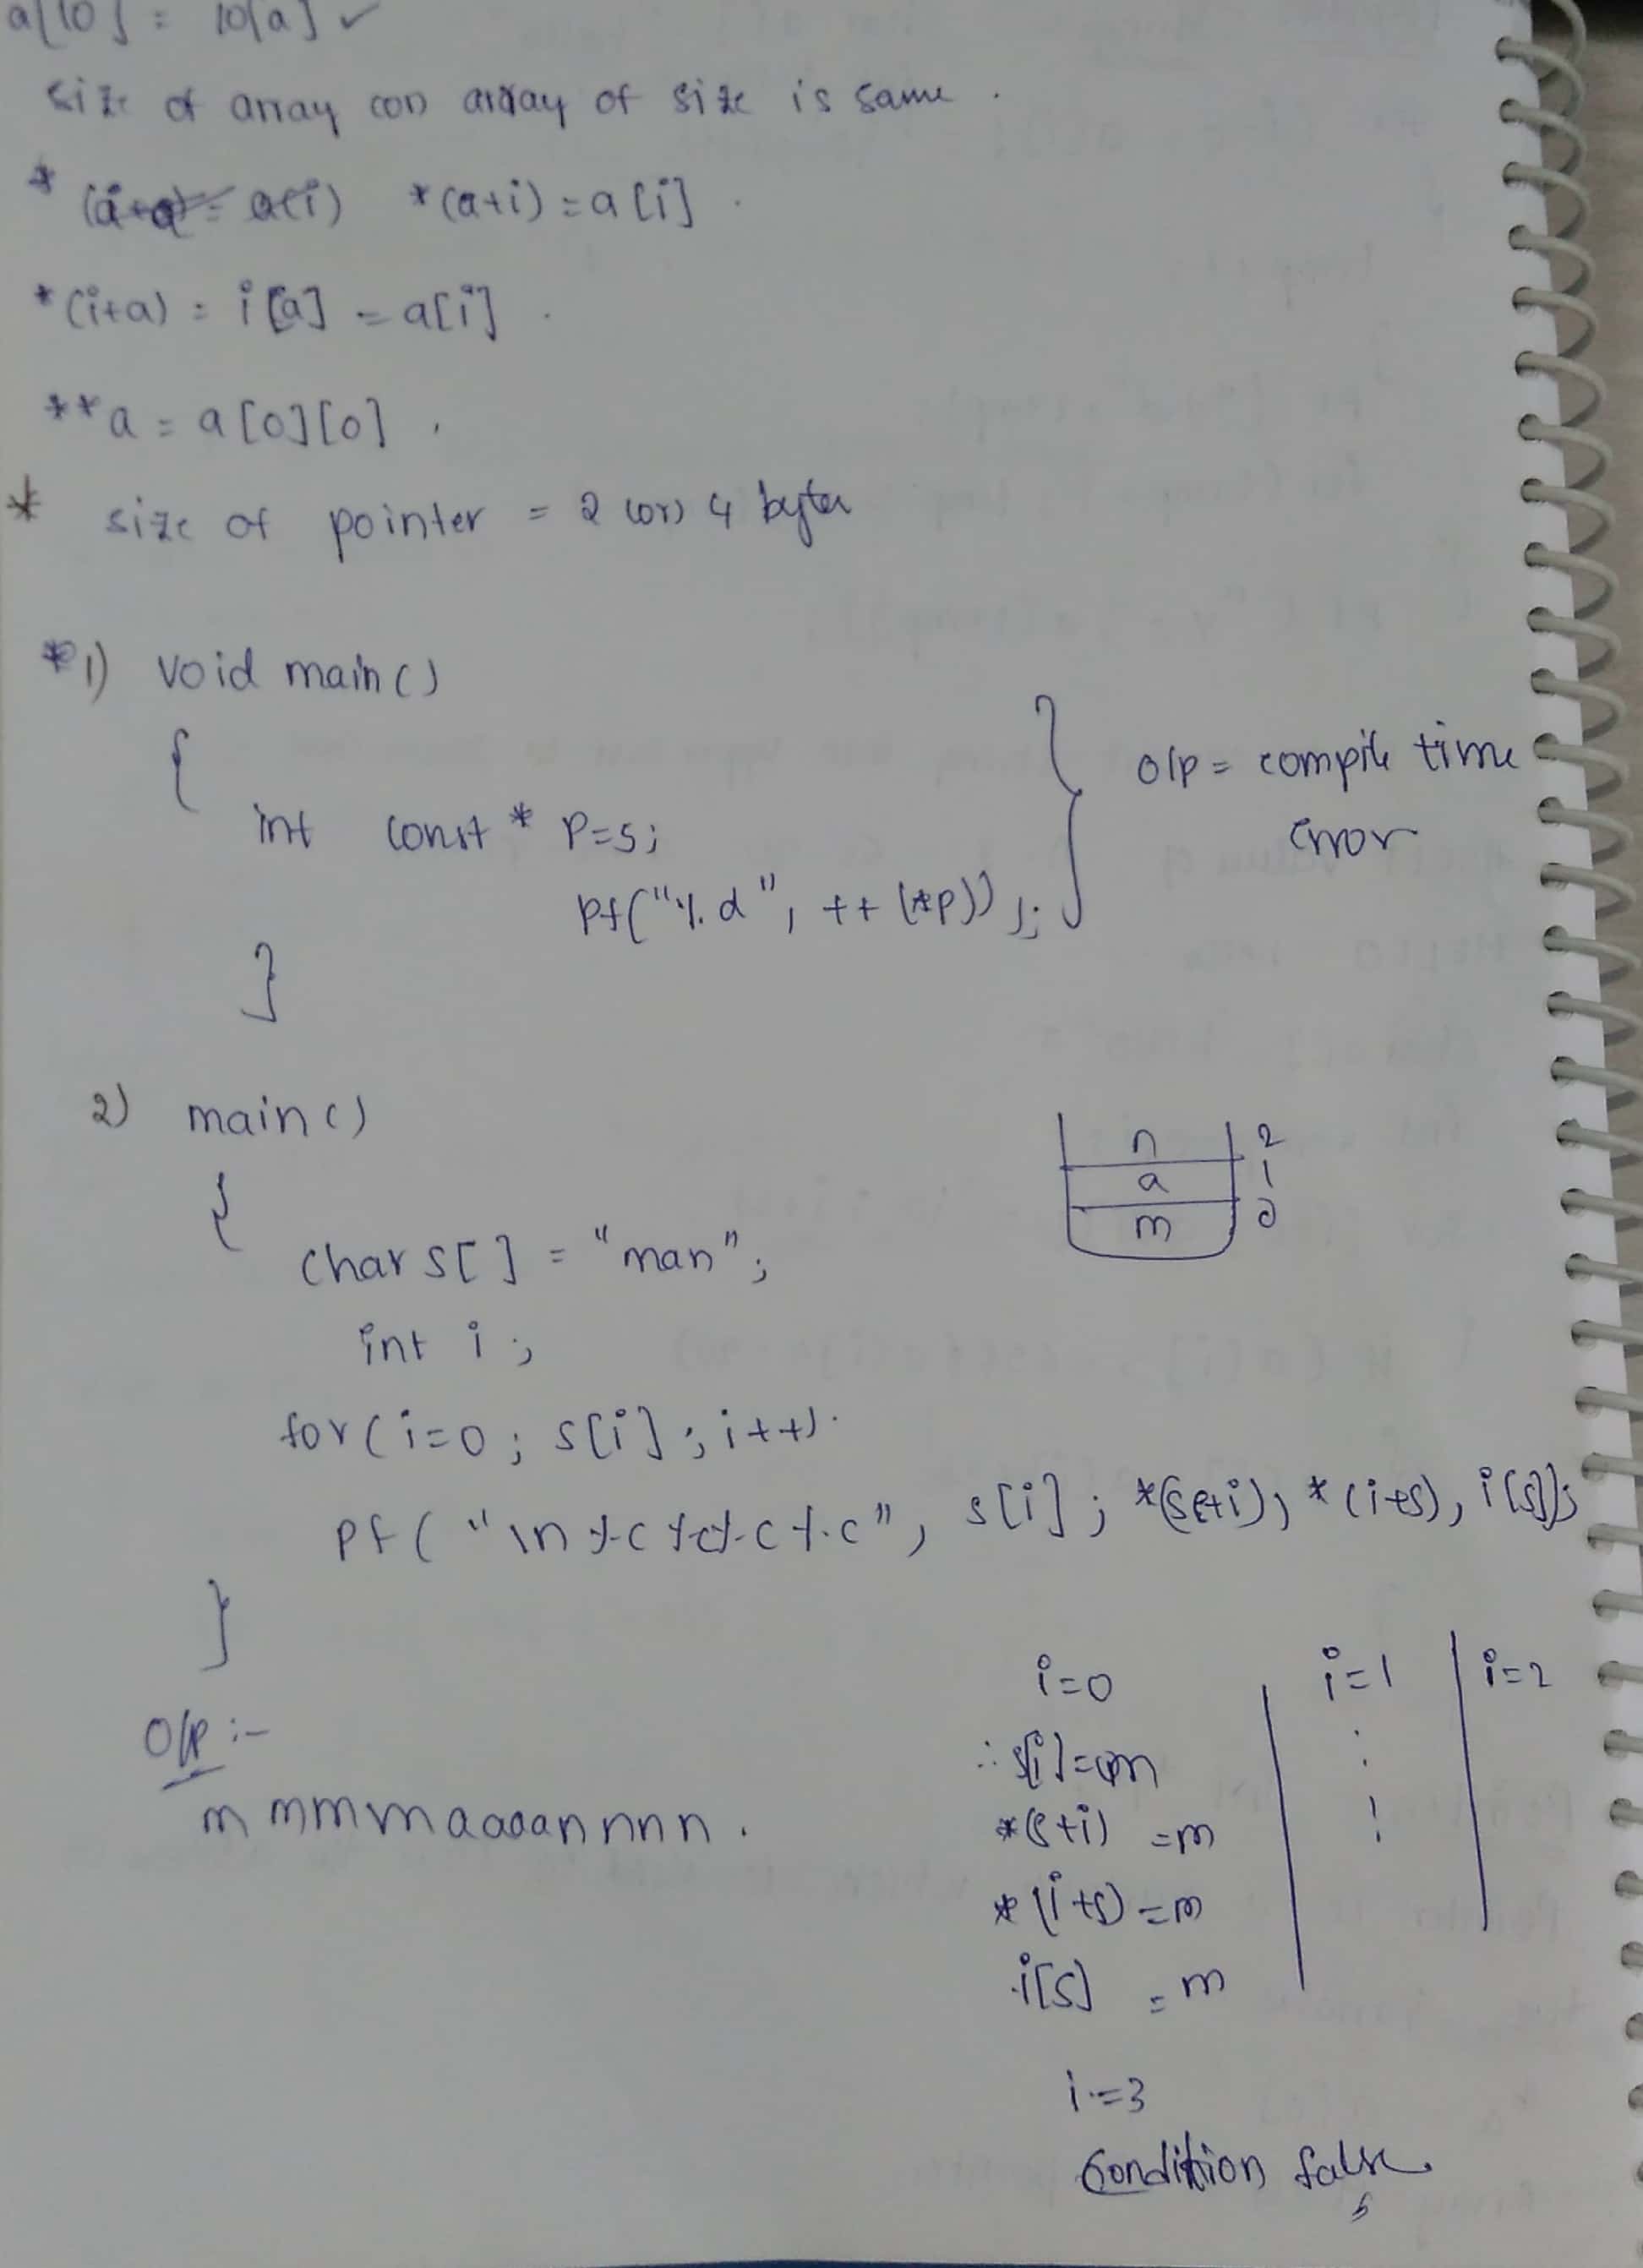 a[10] = 10[a] ✓
size of array (or) array of size is same .
* *(a+i) = a[i] .
*(i+a) = i[a] = a[i] .
**a = a[0][0] .
* size of pointer = 2 (or) 4 bytes
*1) void main()
{
int const * P=5;
Pf("%d", ++(*p));
}
o/p = compile time
Error
2) main()
{
char s[ ] = "man";
int i ;
for(i=0 ; s[i] ; i++)
Pf("\n%c%c%c%c", s[i] ; *(s+i), *(i+s), i[s]);
}
n 2
a 1
m 0
O/P :-
m m m m a a a a n n n n .
i=0 i=1 i=2
∴ s[i]=m
*(s+i) =m
*(i+s) =m
i[s] =m
i=3
Condition false